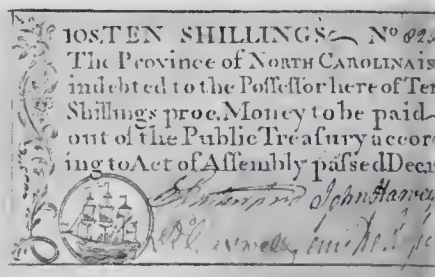 10S. TEN SHILLINGS No 82
The Province of NORTH CAROLINA is
indebted to the Poſſeſſor here of Ten
Shillings proc. Money to be paid
out of the Public Treaſury accor
ing to Act of Aſſembly paſſed Decr
John Harvey